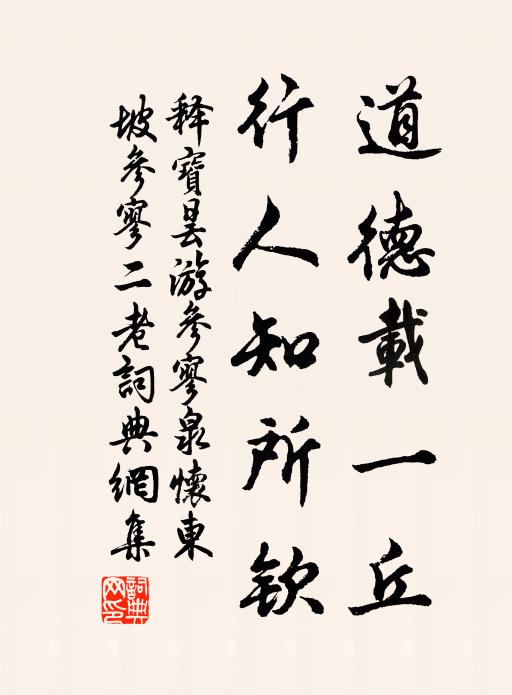 道德載一丘
行人知所欽
释寶曇游參寥泉懷東
坡參寥二老詞典網集
詞典
网印